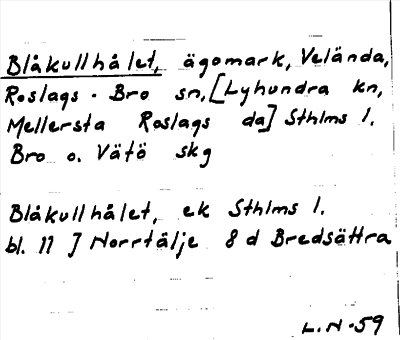 Blåkullhålet, ägomark, Velända,
Roslags-Bro sn, [Lyhundra kn,
Mellersta Roslags da] Sthlms l.
Bro o. Vätö skg
Blåkullhålet, ek Sthlms l.
bl. 11 J Norrtälje 8 d Bredsättra
L.N-59